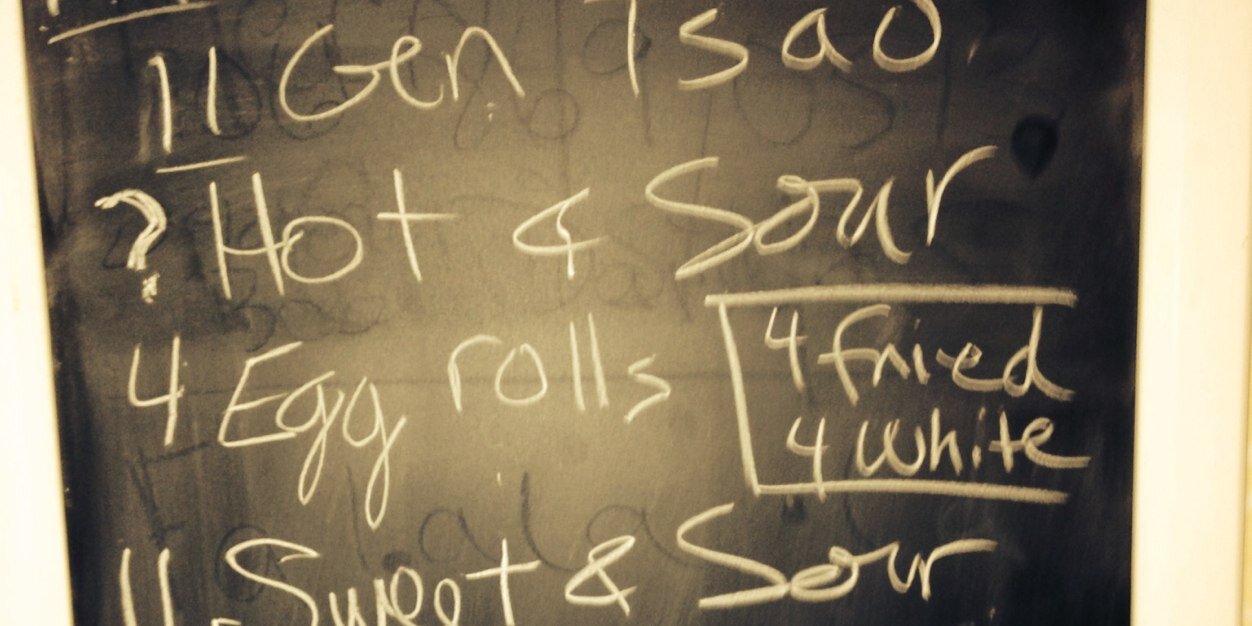 11 Gen Tsao
? Hot & Sour
4 Egg rolls
4 fried
4 white
11 Sweet & Sour